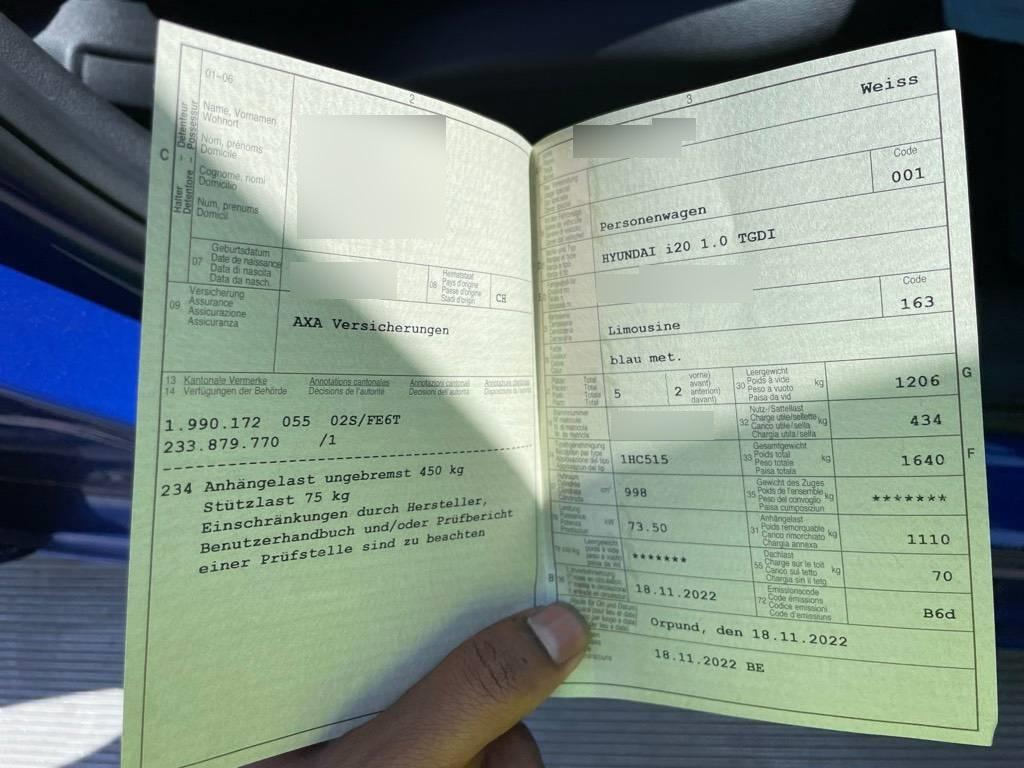 2
01-06
C
Halter Detenteur
Detentore Possessur
Name, Vornamen
Wohnort
Nom, prénoms
Domicile
Cognome, nomi
Domicilio
Num, prenums
Domicil
07
Geburtsdatum
Date de naissance
Data di nascita
Data da nasch.
08
Heimatstaat
Pays d'origine
Paese d'origine
Stadi d'origin
CH
09
Versicherung
Assurance
Assicurazione
Assicuranza
AXA Versicherungen
13 Kantonale Vermerke Annotations cantonales Annotazioni cantonali
14 Verfügungen der Behörde Décisions de l'autorité Decisioni dell'autorità
1.990.172 055 02S/FE6T
233.879.770 /1
234 Anhängelast ungebremst 450 kg
Stützlast 75 kg
Einschränkungen durch Hersteller,
Benutzerhandbuch und/oder Prüfbericht
einer Prüfstelle sind zu beachten
3
Weiss
Code
001
Personenwagen
HYUNDAI i20 1.0 TGDI
Code
163
Limousine
blau met.
Total
Total
Totale
Total
5
2
vorne)
avant)
anteriori)
davant)
30
Leergewicht
Poids à vide
Peso a vuoto
Paisa da vid
kg
1206
G
32
Nutz-/Sattellast
Charge utile/sellette
Carico utile/sella
Chargia utila/sella
kg
434
1HC515
33
Gesamtgewicht
Poids total
Peso totale
Paisa totala
kg
1640
F
cm³
998
35
Gewicht des Zuges
Poids de l'ensemble
Peso del convoglio
Paisa cumposiziun
kg
*******
kW
73.50
31
Anhängelast
Poids remorquable
Carico rimorchiato
Chargia annexa
kg
1110
*******
55
Dachlast
Charge sur le toit
Carico sul tetto
Chargia sin il tetg
kg
70
B
18.11.2022
72
Emissionscode
Code émissions
Codice emissioni
Code d'emissiuns
B6d
Orpund, den 18.11.2022
18.11.2022 BE